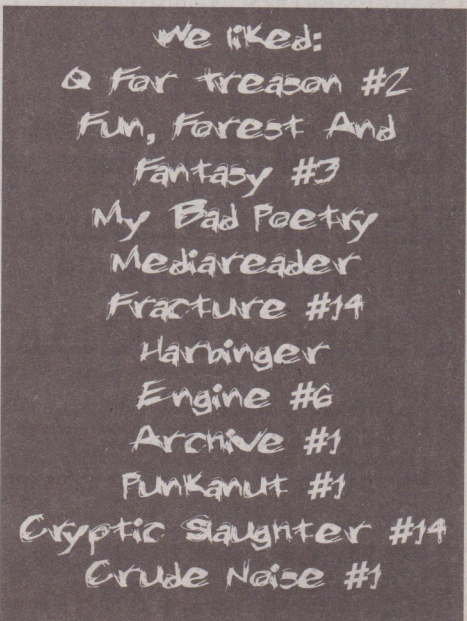 We liked:
Q For Treason #2
Fun, Forest And
Fantasy #3
My Bad Poetry
Mediareader
Fracture #14
Harbinger
Engine #6
Archive #1
Punkanut #1
Cryptic Slaughter #14
Crude Noise #1